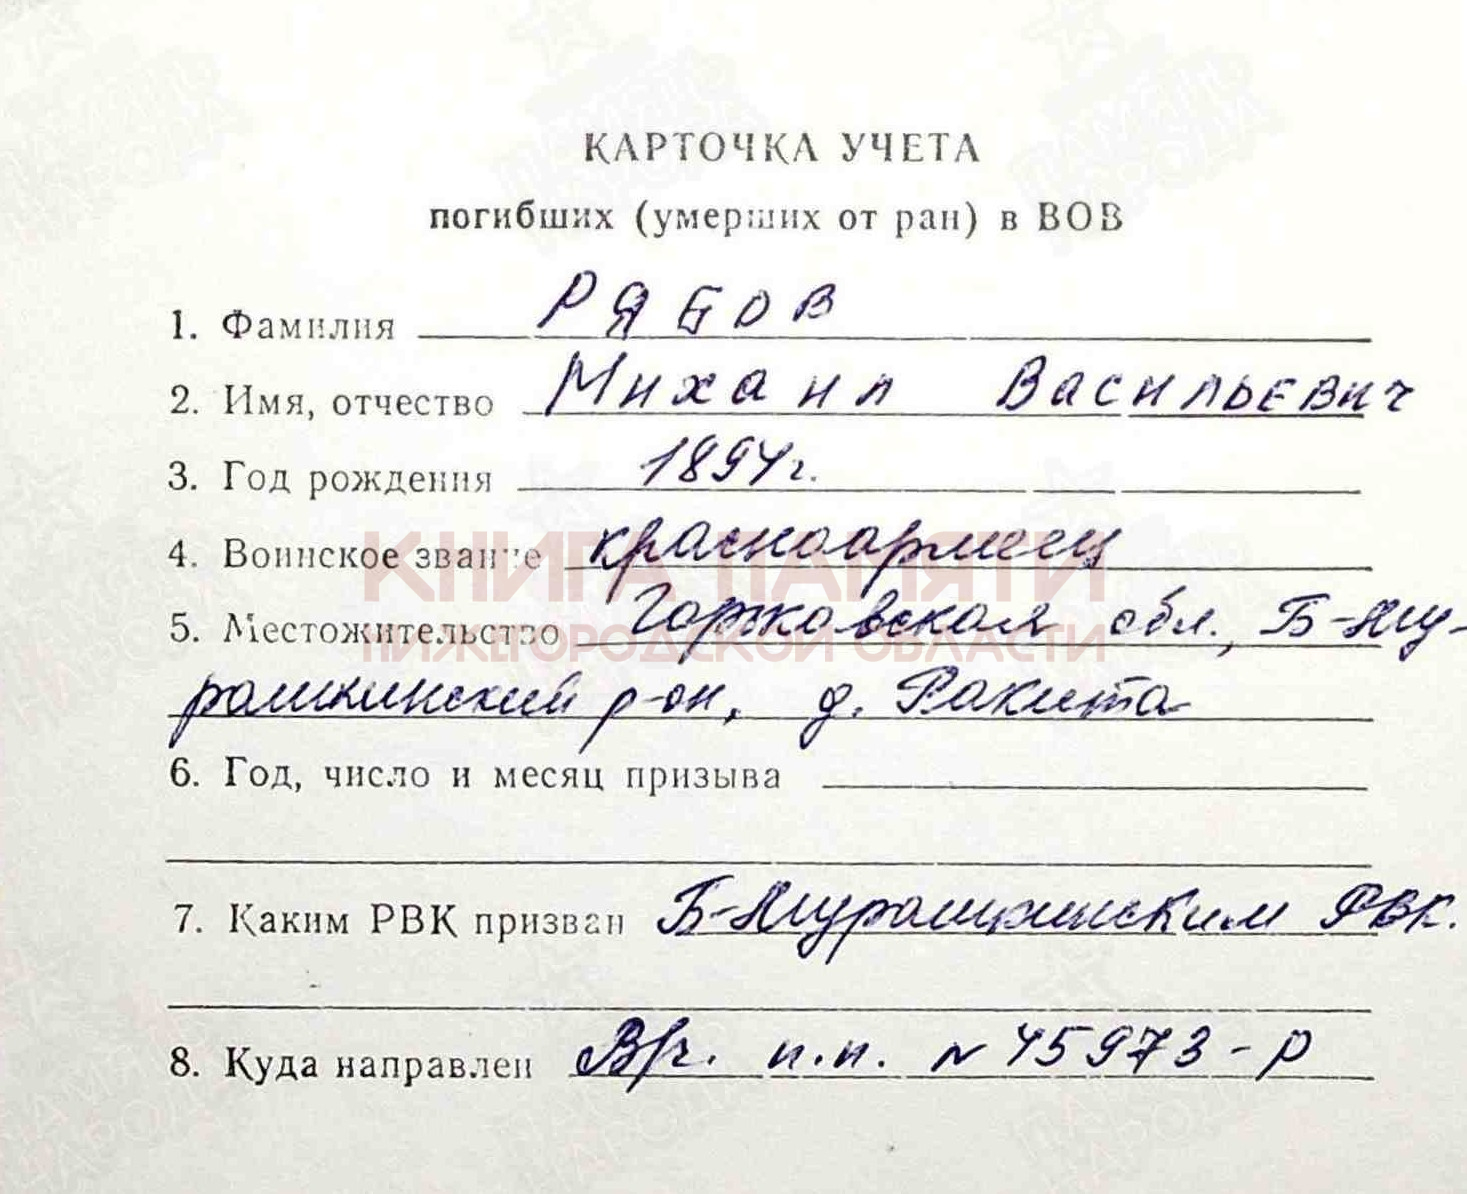 КАРТОЧКА УЧЕТА
погибших (умерших от ран) в ВОВ
1. Фамилия РЯБОВ
2. Имя, отчество Михаил Васильевич
3. Год рождения 1894г.
4. Воинское звание красноармеец
КНИГА ПАМЯТИ
5. Местожительство Горьковская обл., Б-Му-
НИЖЕГОРОДСКОЙ ОБЛАСТИ
рашкинский р-он, д. Ракита
6. Год, число и месяц призыва
7. Каким РВК призван Б-Мурашкинским РВК.
8. Куда направлен В/ч. п.п. N 45973-Р